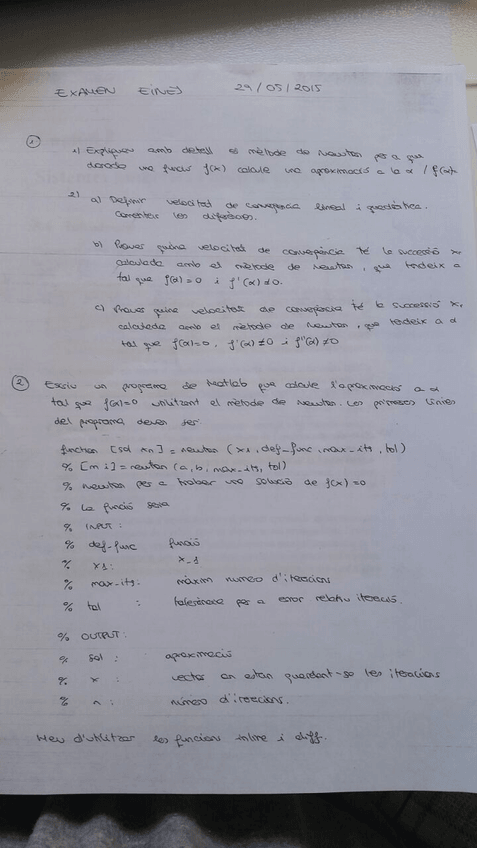 EXAMEN EINES 29/05/2015
①
1) Expliqueu amb detall el mètode de Newton per a que
donada una funció f(x) calcule una aproximació a la α / f(α)=0.
2) a) Definir velocitat de convergència lineal i quadràtica.
Comentar les diferències.
b) Proveu quina velocitat de convergència té la successió xn
calculada amb el mètode de Newton, que tendeix a
tal que f(α)=0 i f'(α)≠0.
c) Proveu quina velocitat de convergència té la successió xn
calculada amb el mètode de Newton, que tendeix a α
tal que f(α)=0, f'(α)≠0 i f''(α)≠0
② Escriu un programa de Matlab que calcule l'aproximació a α
tal que f(α)=0 utilitzant el mètode de Newton. Les primeres línies
del programa deuen ser:
function [sol x n] = newton (x1, def_func, max_its, tol)
% [m i] = newton (a, b, max_its, tol)
% Newton per a trobar una solució de f(x)=0
% La funció serà
% INPUT:
% def_func funció
% x1: x_1
% max_its: màxim número d'iteracions
% tol : tolerància per a error relatiu iteració.
% OUTPUT:
% sol : aproximació
% x : vector on estan guardant-se les iteracions
% n : número d'iteracions.
Heu d'utilitzar les funcions inline i diff.